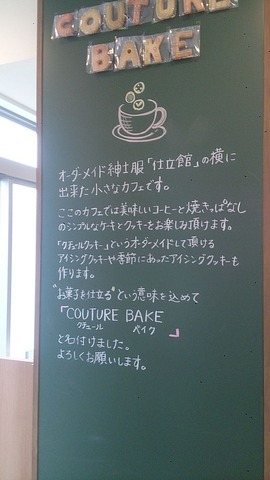 COUTURE
BAKE
オーダーメイド紳士服「仕立館」の横に
出来た小さなカフェです。
ここのカフェでは美味しいコーヒーと焼きっぱなし
のシンプルなケーキとクッキーをお楽しみ頂けます。
「クチュールクッキー」というオーダーメイドして頂ける
アイシングクッキーや季節にあったアイシングクッキーも
作ります。
"お菓子を仕立る"という意味を込めて
「COUTURE BAKE
クチュール ベイク 」
と名付けました。
よろしくお願いします。